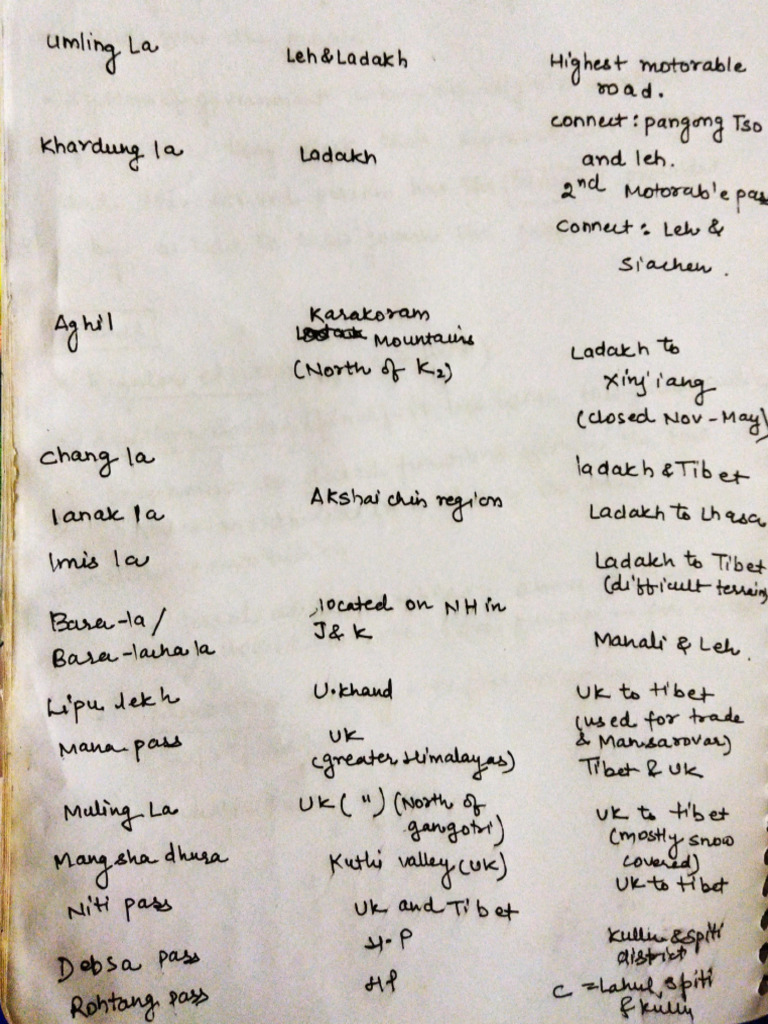 Umling La Leh & Ladakh Highest motorable
road.
connect: pangong Tso
Khardung la Ladakh and leh.
2nd Motorable pass
Connect: Leh &
Siachen.
Aghil Karakoram
Mountains Ladakh to
(North of K2) Xinjiang
(closed Nov-May)
Chang la ladakh & Tibet
lanak la Akshai chin region Ladakh to Lhasa
Imis la Ladakh to Tibet
(difficult terrain)
Bara-la/ located on NH in
Bara-lacha la J&K Manali & Leh.
Lipu lekh U.khand UK to tibet
(used for trade
& Mansarovar)
Mana pass UK
(greater Himalayas) Tibet & UK
Muling La UK (") (North of
gangotri) UK to tibet
(mostly snow
covered)
Mangsha dhura Kuthi valley (UK) UK to tibet
Niti pass UK and Tibet
Debsa pass H.P Kullu & spiti
district
Rohtang pass HP C = Lahul, spiti
& kullu